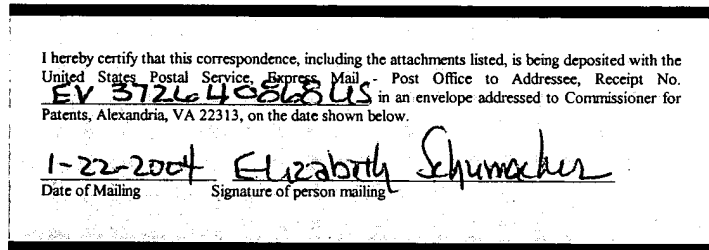 I hereby certify that this correspondence, including the attachments listed, is being deposited with the
United States Postal Service, Express Mail - Post Office to Addressee, Receipt No.
EV 372640868 US in an envelope addressed to Commissioner for
Patents, Alexandria, VA 22313, on the date shown below.
1-22-2004 Elizabeth Schumacher
Date of Mailing Signature of person mailing